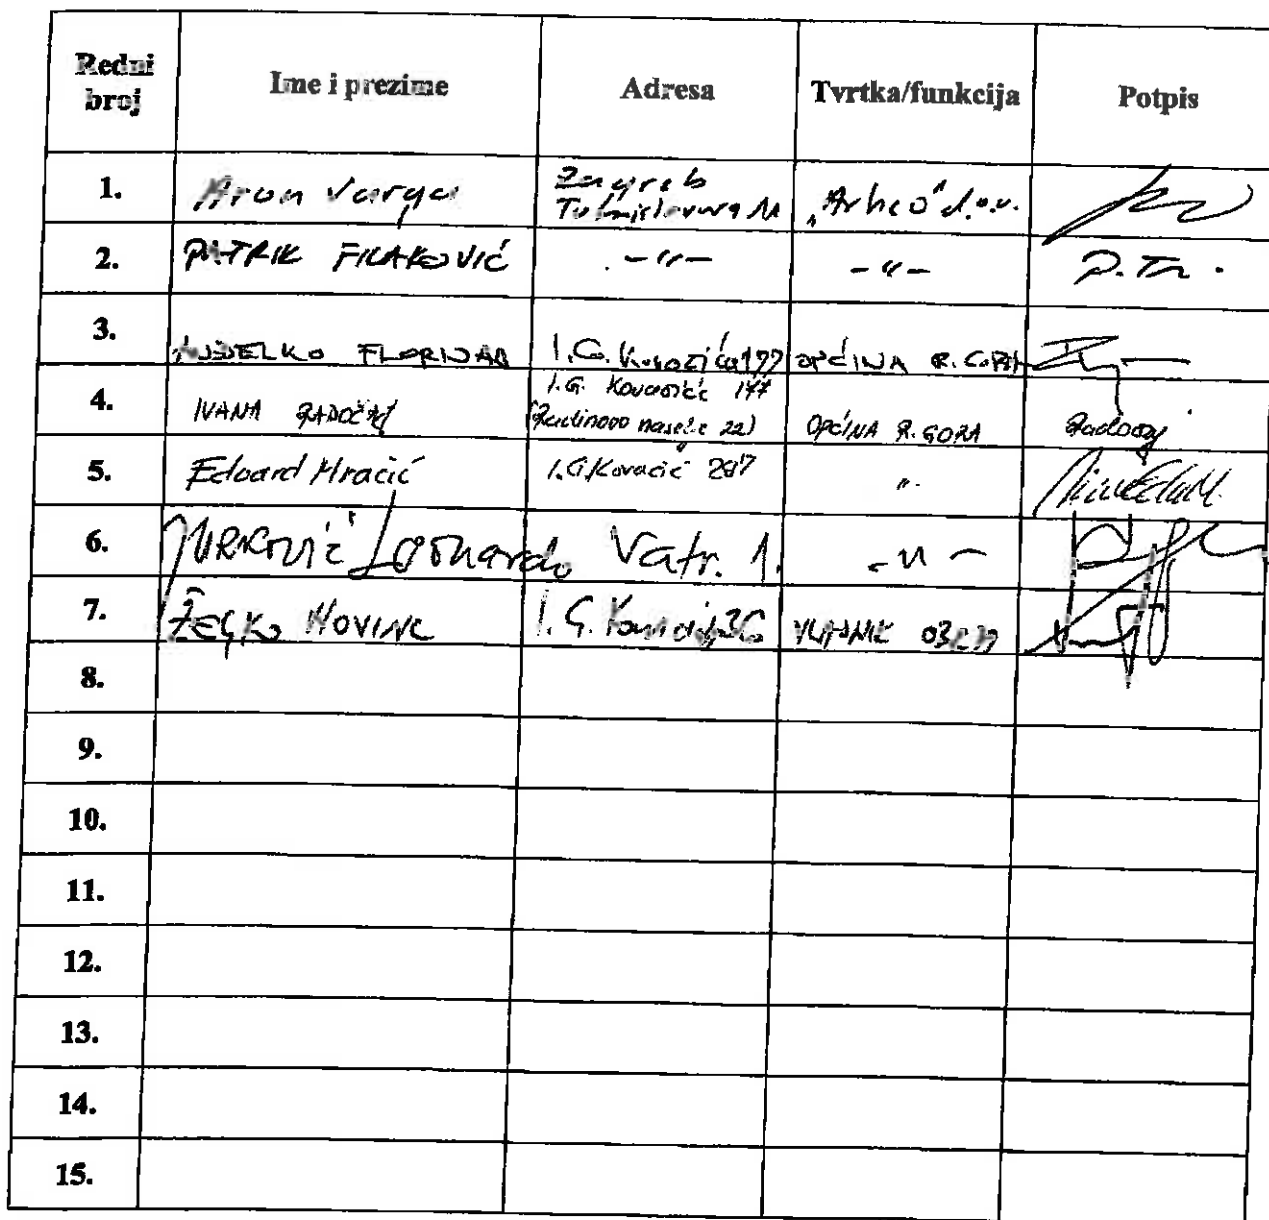 Redni broj Ime i prezime Adresa Tvrtka/funkcija Potpis
1. Aron Varga Zagreb Tomislavova 11 „Arheo" d.o.o.
2. PATRIK FILAKOVIĆ -"- -"- P.
3. FLORIJAN I.G. Kovačića 177 OPĆINA R. GORA
4. IVANA RADOČAJ I.G. Kovačića 177 (Radinovo naselje 22) OPĆINA R. GORA Radočaj
5. Edvard Mračić I.G. Kovačić 207 "
6. JURKOVIĆ Leonardo Vatr. 1. -"-
7. ŽELJKO NOVINC I.G. VLASNIK
8.
9.
10.
11.
12.
13.
14.
15.